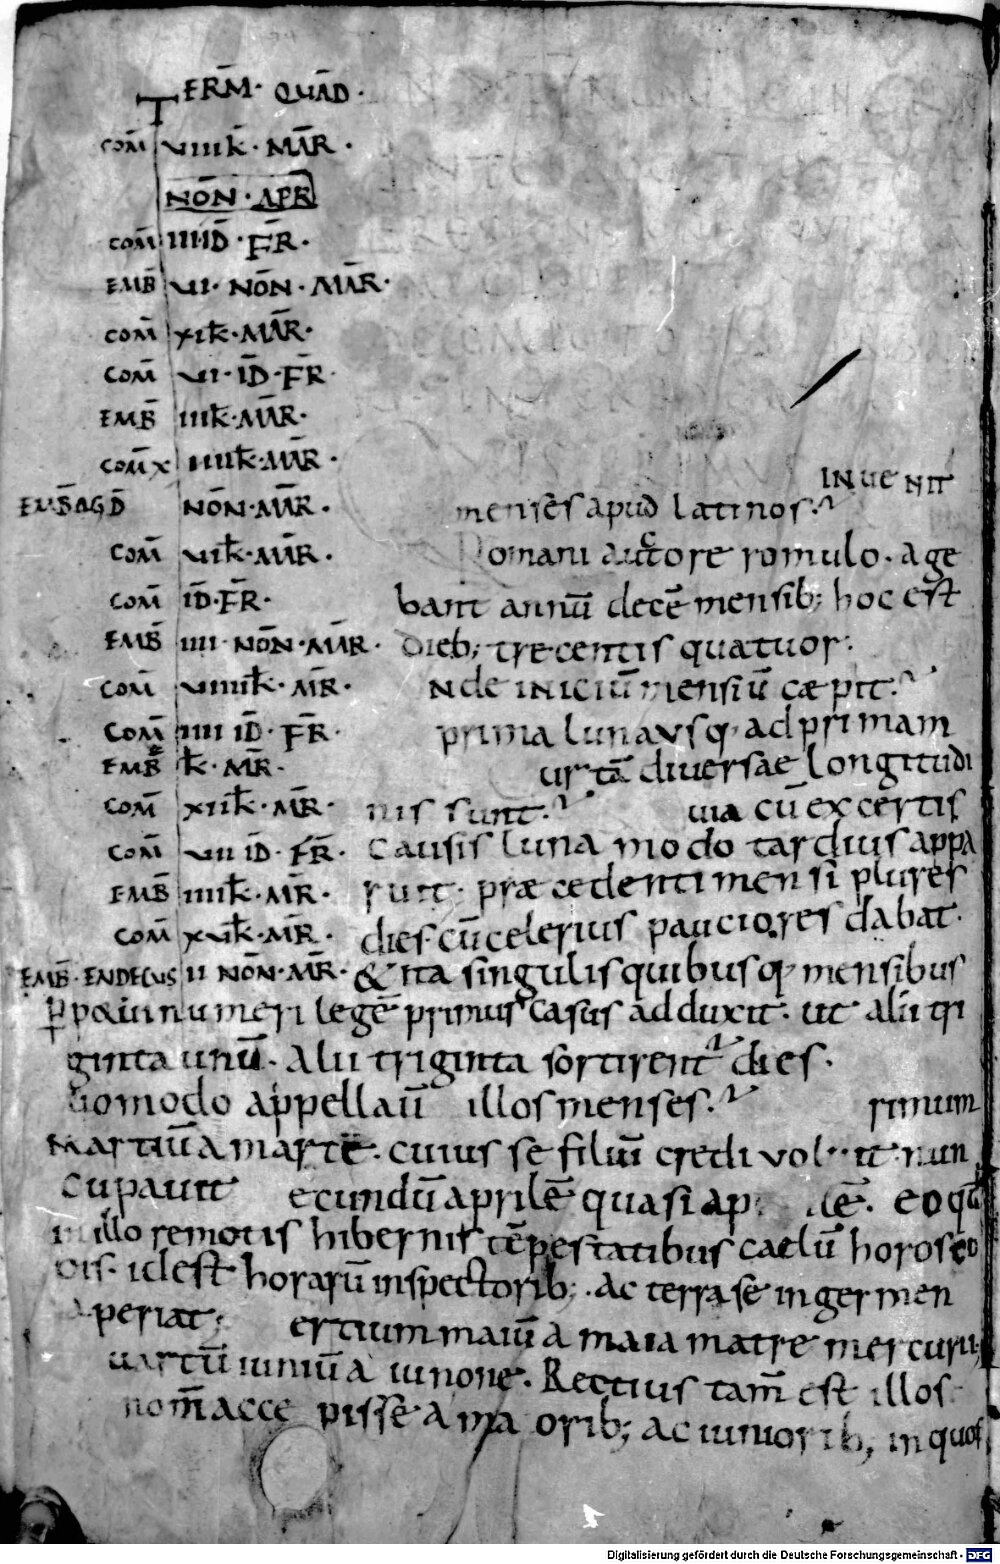 TERM̄ · QUAD̄ ·
COM̄ VIIII K̄ · MAR̄ ·
NON̄ · APR̄
COM̄ IIII ID̄ · FR̄ ·
EMB̄ VI · NON̄ · MAR̄ ·
COM̄ XI K̄ · MAR̄ ·
COM̄ VI · ID̄ · FR̄ ·
EMB̄ III K̄ · MAR̄ ·
COM̄ X IIII K̄ · MAR̄ ·
EMB̄ OGD̄ NON̄ · MAR̄ ·
COM̄ VII K̄ · MAR̄ ·
COM̄ ID̄ · FR̄ ·
EMB̄ IIII · NON̄ · MAR̄ ·
COM̄ VIIII K̄ · MR̄ ·
COM̄ IIII ID̄ · FR̄ ·
EMB̄ K̄ · MR̄ ·
COM̄ XII K̄ · MR̄ ·
COM̄ VII ID̄ · FR̄ ·
EMB̄ IIII K̄ · MR̄ ·
COM̄ XV K̄ · MR̄ ·
EMB̄ · ENDECUS II NON̄ · MR̄ ·
INVENIT
menses apud latinos
Romani auctore romulo · age
bant annū decē mensib; hoc est
dieb; trecentis quatuor ·
nde iniciū mensiū cæpit ·
prima luna usq· ad primam
ur tā diversae longitudi
nis sunt · uia cū ex certis
causis luna modo tardius appa
ruit · præcedenti mensi plures
dies · cū celerius pauciores dabat ·
& ita singulis quibusq· mensibus
numeri legē primus casus adduxit · ut alii tri
ginta unū · alii triginta sortirent dies ·
uomodo appellaū illos menses · rimum
Martiū a marte · cuius se filiū credi vol it nun
cupavit ecundū aprilē quasi ap lē · eo qd̄
in illo remotis hibernis tēpestatibus caelū horosco
pis · id est horarū inspectorib; · ac terra se in germen
aperiat; ertium maiū a maia matre mercurii;
uartū iuniū a iunone · Rectius tam̄ est illos
nom̄ accepisse a ma orib; ac iuniorib; in quos
Digitalisierung gefördert durch die Deutsche Forschungsgemeinschaft - DFG